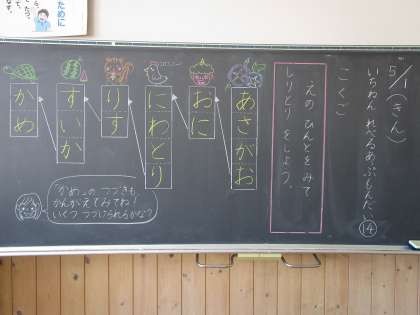 5/1(きん)
いちねん れべるあっぷもんだい ⑭
こくご
えの ひんとをみて
しりとり をしよう。
あさがお
おに
にわとり
りす
すいか
かめ
「かめ」の つづきも
かんがえてみてね!
いくつ つづけられるかな?
ために